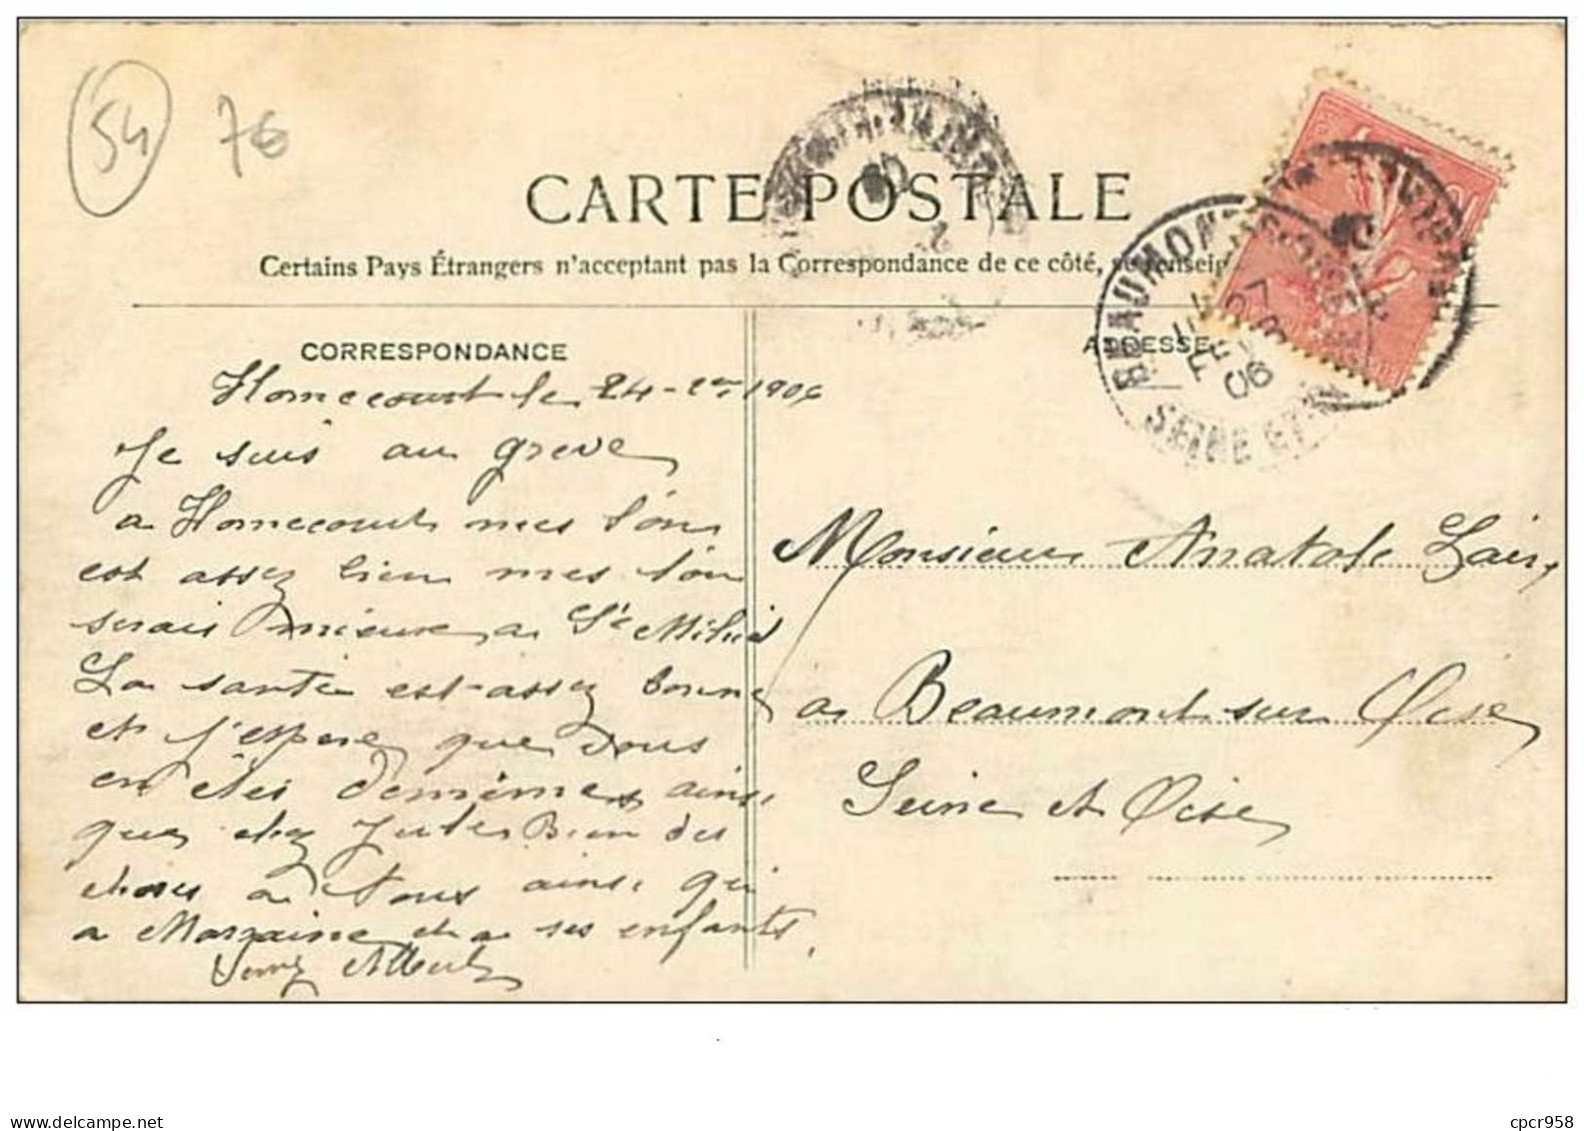 54 76
CARTE POSTALE
Certains Pays Étrangers n'acceptant pas la Correspondance de ce côté, se renseig
CORRESPONDANCE
ADRESSE
BEAUMONT S OISE
27
06
SEINE ET
Homecourt le 24 - 1906
Je suis au greve
a Homecourt mes l'on
est assez bien mes l'on
serais mieux a St Mihiel
La santé est assez bonne
et j'espere que vous
en êtes de meme ainsi
que chez Jules Bien des
choses a Vous ainsi qui
a Marraine et a ses enfants,
Albert
Monsieur Anatole Lair
a Beaumont sur Oise
Seine et Oise
cpcr958